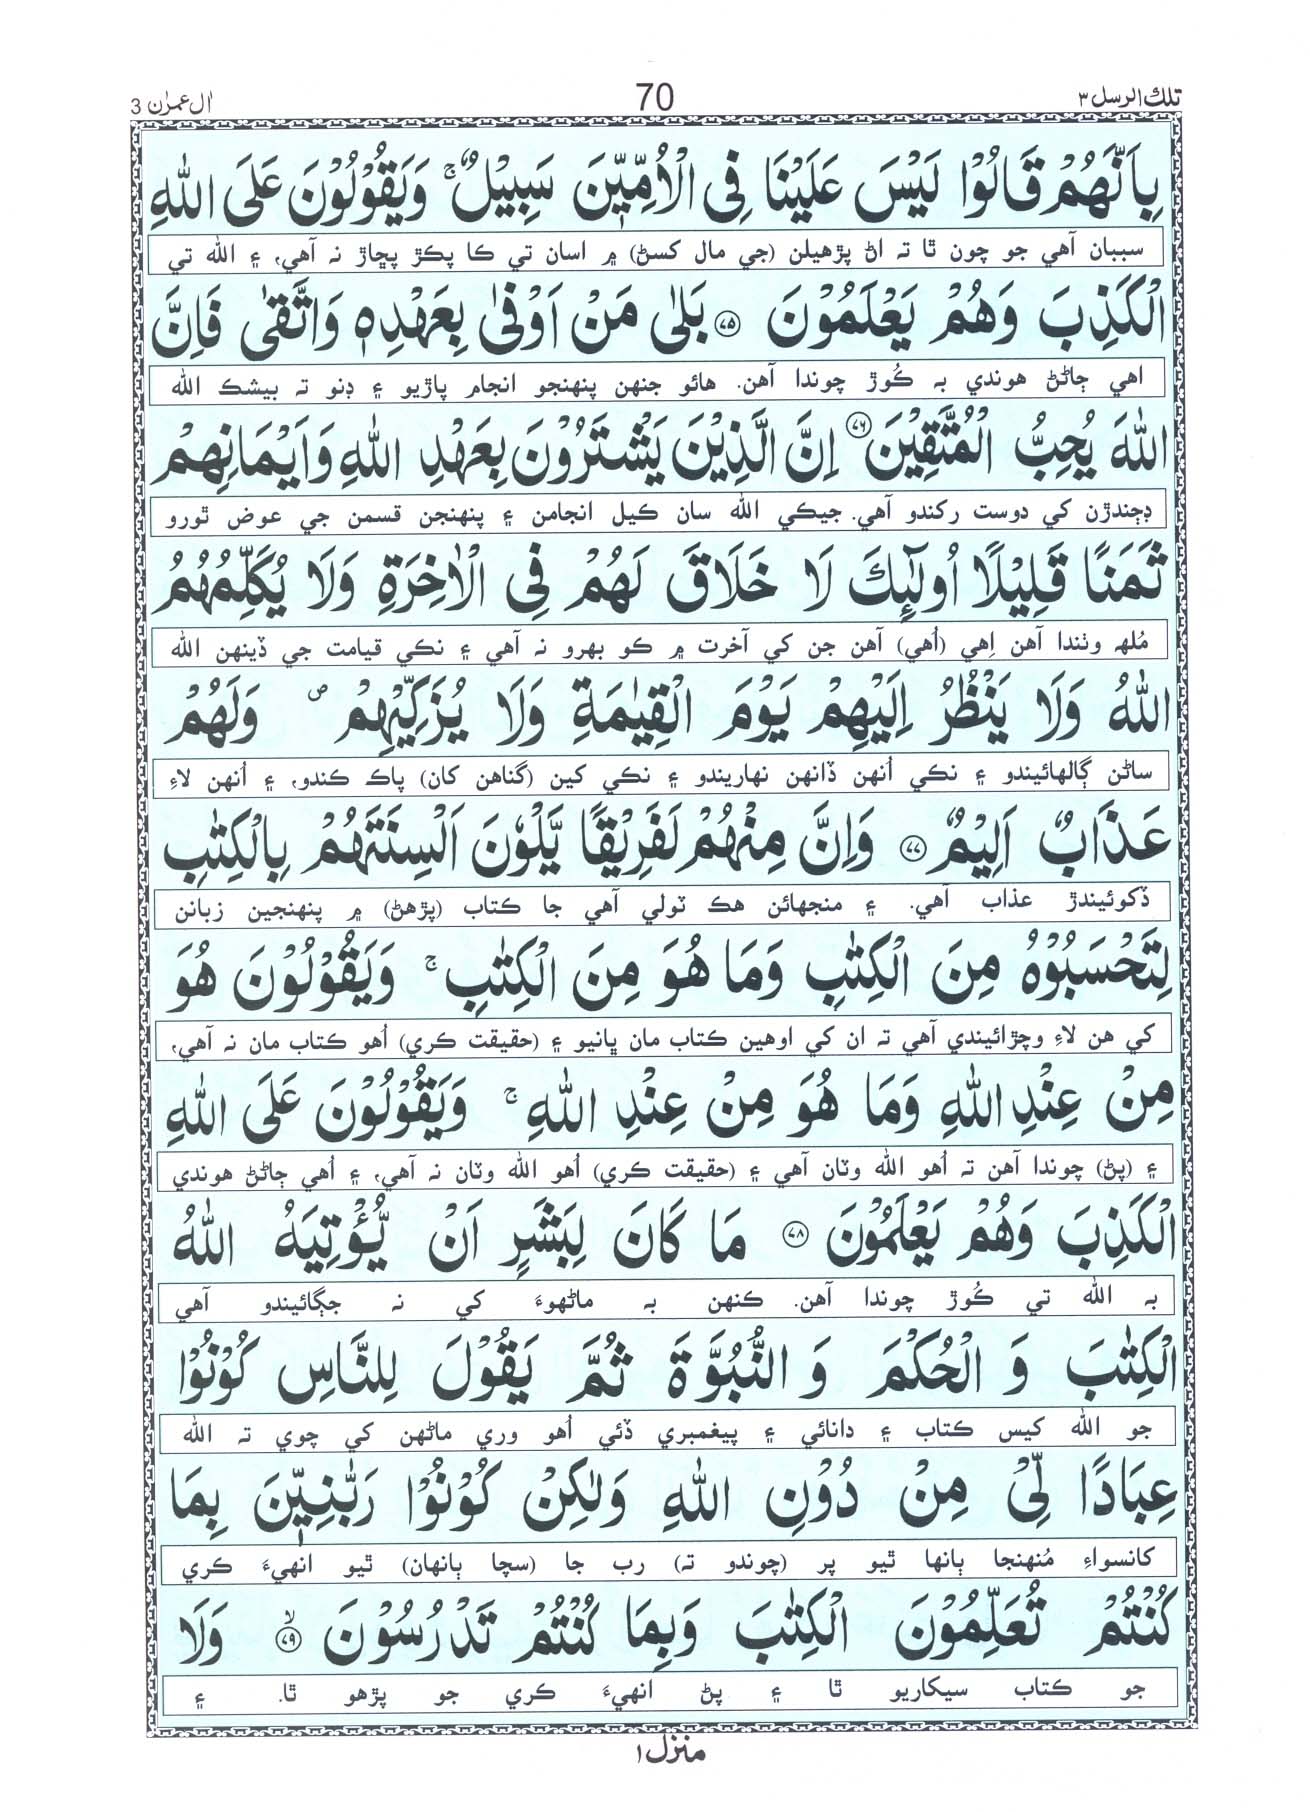 تلك الرسل ٣
70
اٰل عمرٰن 3
بِاَنَّهُمْ قَالُوْا لَيْسَ عَلَيْنَا فِى الْاُمِّيّٖنَ سَبِيْلٌ ۚ وَيَقُوْلُوْنَ عَلَى اللّٰهِ
سببان آهي جو چون ٿا ته اڻ پڙهيلن (جي مال کسڻ) ۾ اسان تي ڪا پڪڙ پڇاڙ نہ آهي، ۽ الله تي
الْكَذِبَ وَهُمْ يَعْلَمُوْنَ ﴿٧٥﴾ بَلٰى مَنْ اَوْفٰى بِعَهْدِهٖ وَاتَّقٰى فَاِنَّ
اهي ڄاڻڻ هوندي به ڪُوڙ چوندا آهن. هائو جنهن پنهنجو انجام پاڙيو ۽ ڊنو ته بيشڪ الله
اللّٰهَ يُحِبُّ الْمُتَّقِيْنَ ﴿٧٦﴾ اِنَّ الَّذِيْنَ يَشْتَرُوْنَ بِعَهْدِ اللّٰهِ وَاَيْمَانِهِمْ
ڊڄندڙن کي دوست رکندو آهي. جيڪي الله سان ڪيل انجامن ۽ پنهنجن قسمن جي عوض ٿورو
ثَمَنًا قَلِيْلًا اُولٰٓئِكَ لَا خَلَاقَ لَهُمْ فِى الْاٰخِرَةِ وَلَا يُكَلِّمُهُمُ
مُلهہ وٺندا آهن اِهي (اُهي) آهن جن کي آخرت ۾ ڪو بهرو نہ آهي ۽ نڪي قيامت جي ڏينهن الله
اللّٰهُ وَلَا يَنْظُرُ اِلَيْهِمْ يَوْمَ الْقِيٰمَةِ وَلَا يُزَكِّيْهِمْ ۖ وَلَهُمْ
ساڻن ڳالهائيندو ۽ نڪي اُنهن ڏانهن نهاريندو ۽ نڪي کين (گناهن کان) پاڪ ڪندو، ۽ اُنهن لاءِ
عَذَابٌ اَلِيْمٌ ﴿٧٧﴾ وَاِنَّ مِنْهُمْ لَفَرِيْقًا يَّلْوٗنَ اَلْسِنَتَهُمْ بِالْكِتٰبِ
ڏکوئيندڙ عذاب آهي. ۽ منجهائن هڪ ٽولي آهي جا ڪتاب (پڙهڻ) ۾ پنهنجين زبانن
لِتَحْسَبُوْهُ مِنَ الْكِتٰبِ وَمَا هُوَ مِنَ الْكِتٰبِ ۚ وَيَقُوْلُوْنَ هُوَ
کي هن لاءِ وچڙائيندي آهي ته ان کي اوهين ڪتاب مان ڀانيو ۽ (حقيقت ڪري) اُهو ڪتاب مان نہ آهي،
مِنْ عِنْدِ اللّٰهِ وَمَا هُوَ مِنْ عِنْدِ اللّٰهِ ۚ وَيَقُوْلُوْنَ عَلَى اللّٰهِ
۽ (پڻ) چوندا آهن ته اُهو الله وٽان آهي ۽ (حقيقت ڪري) اُهو الله وٽان نہ آهي، ۽ اُهي ڄاڻڻ هوندي
الْكَذِبَ وَهُمْ يَعْلَمُوْنَ ﴿٧٨﴾ مَا كَانَ لِبَشَرٍ اَنْ يُّؤْتِيَهُ اللّٰهُ
به الله تي ڪُوڙ چوندا آهن. ڪنهن به ماڻهوءَ کي نہ جڳائيندو آهي
الْكِتٰبَ وَ الْحُكْمَ وَ النُّبُوَّةَ ثُمَّ يَقُوْلَ لِلنَّاسِ كُوْنُوْا
جو الله کيس ڪتاب ۽ دانائي ۽ پيغمبري ڏئي اُهو وري ماڻهن کي چوي ته الله
عِبَادًا لِّىْ مِنْ دُوْنِ اللّٰهِ وَلٰكِنْ كُوْنُوْا رَبّٰنِيّٖنَ بِمَا
کانسواءِ مُنهنجا ٻانها ٿيو پر (چوندو ته) رب جا (سچا ٻانهان) ٿيو انهيءَ ڪري
كُنْتُمْ تُعَلِّمُوْنَ الْكِتٰبَ وَبِمَا كُنْتُمْ تَدْرُسُوْنَ ﴿٧٩﴾ ۙ وَلَا
جو ڪتاب سيکاريو ٿا ۽ پڻ انهيءَ ڪري جو پڙهو ٿا. ۽
منزل ١